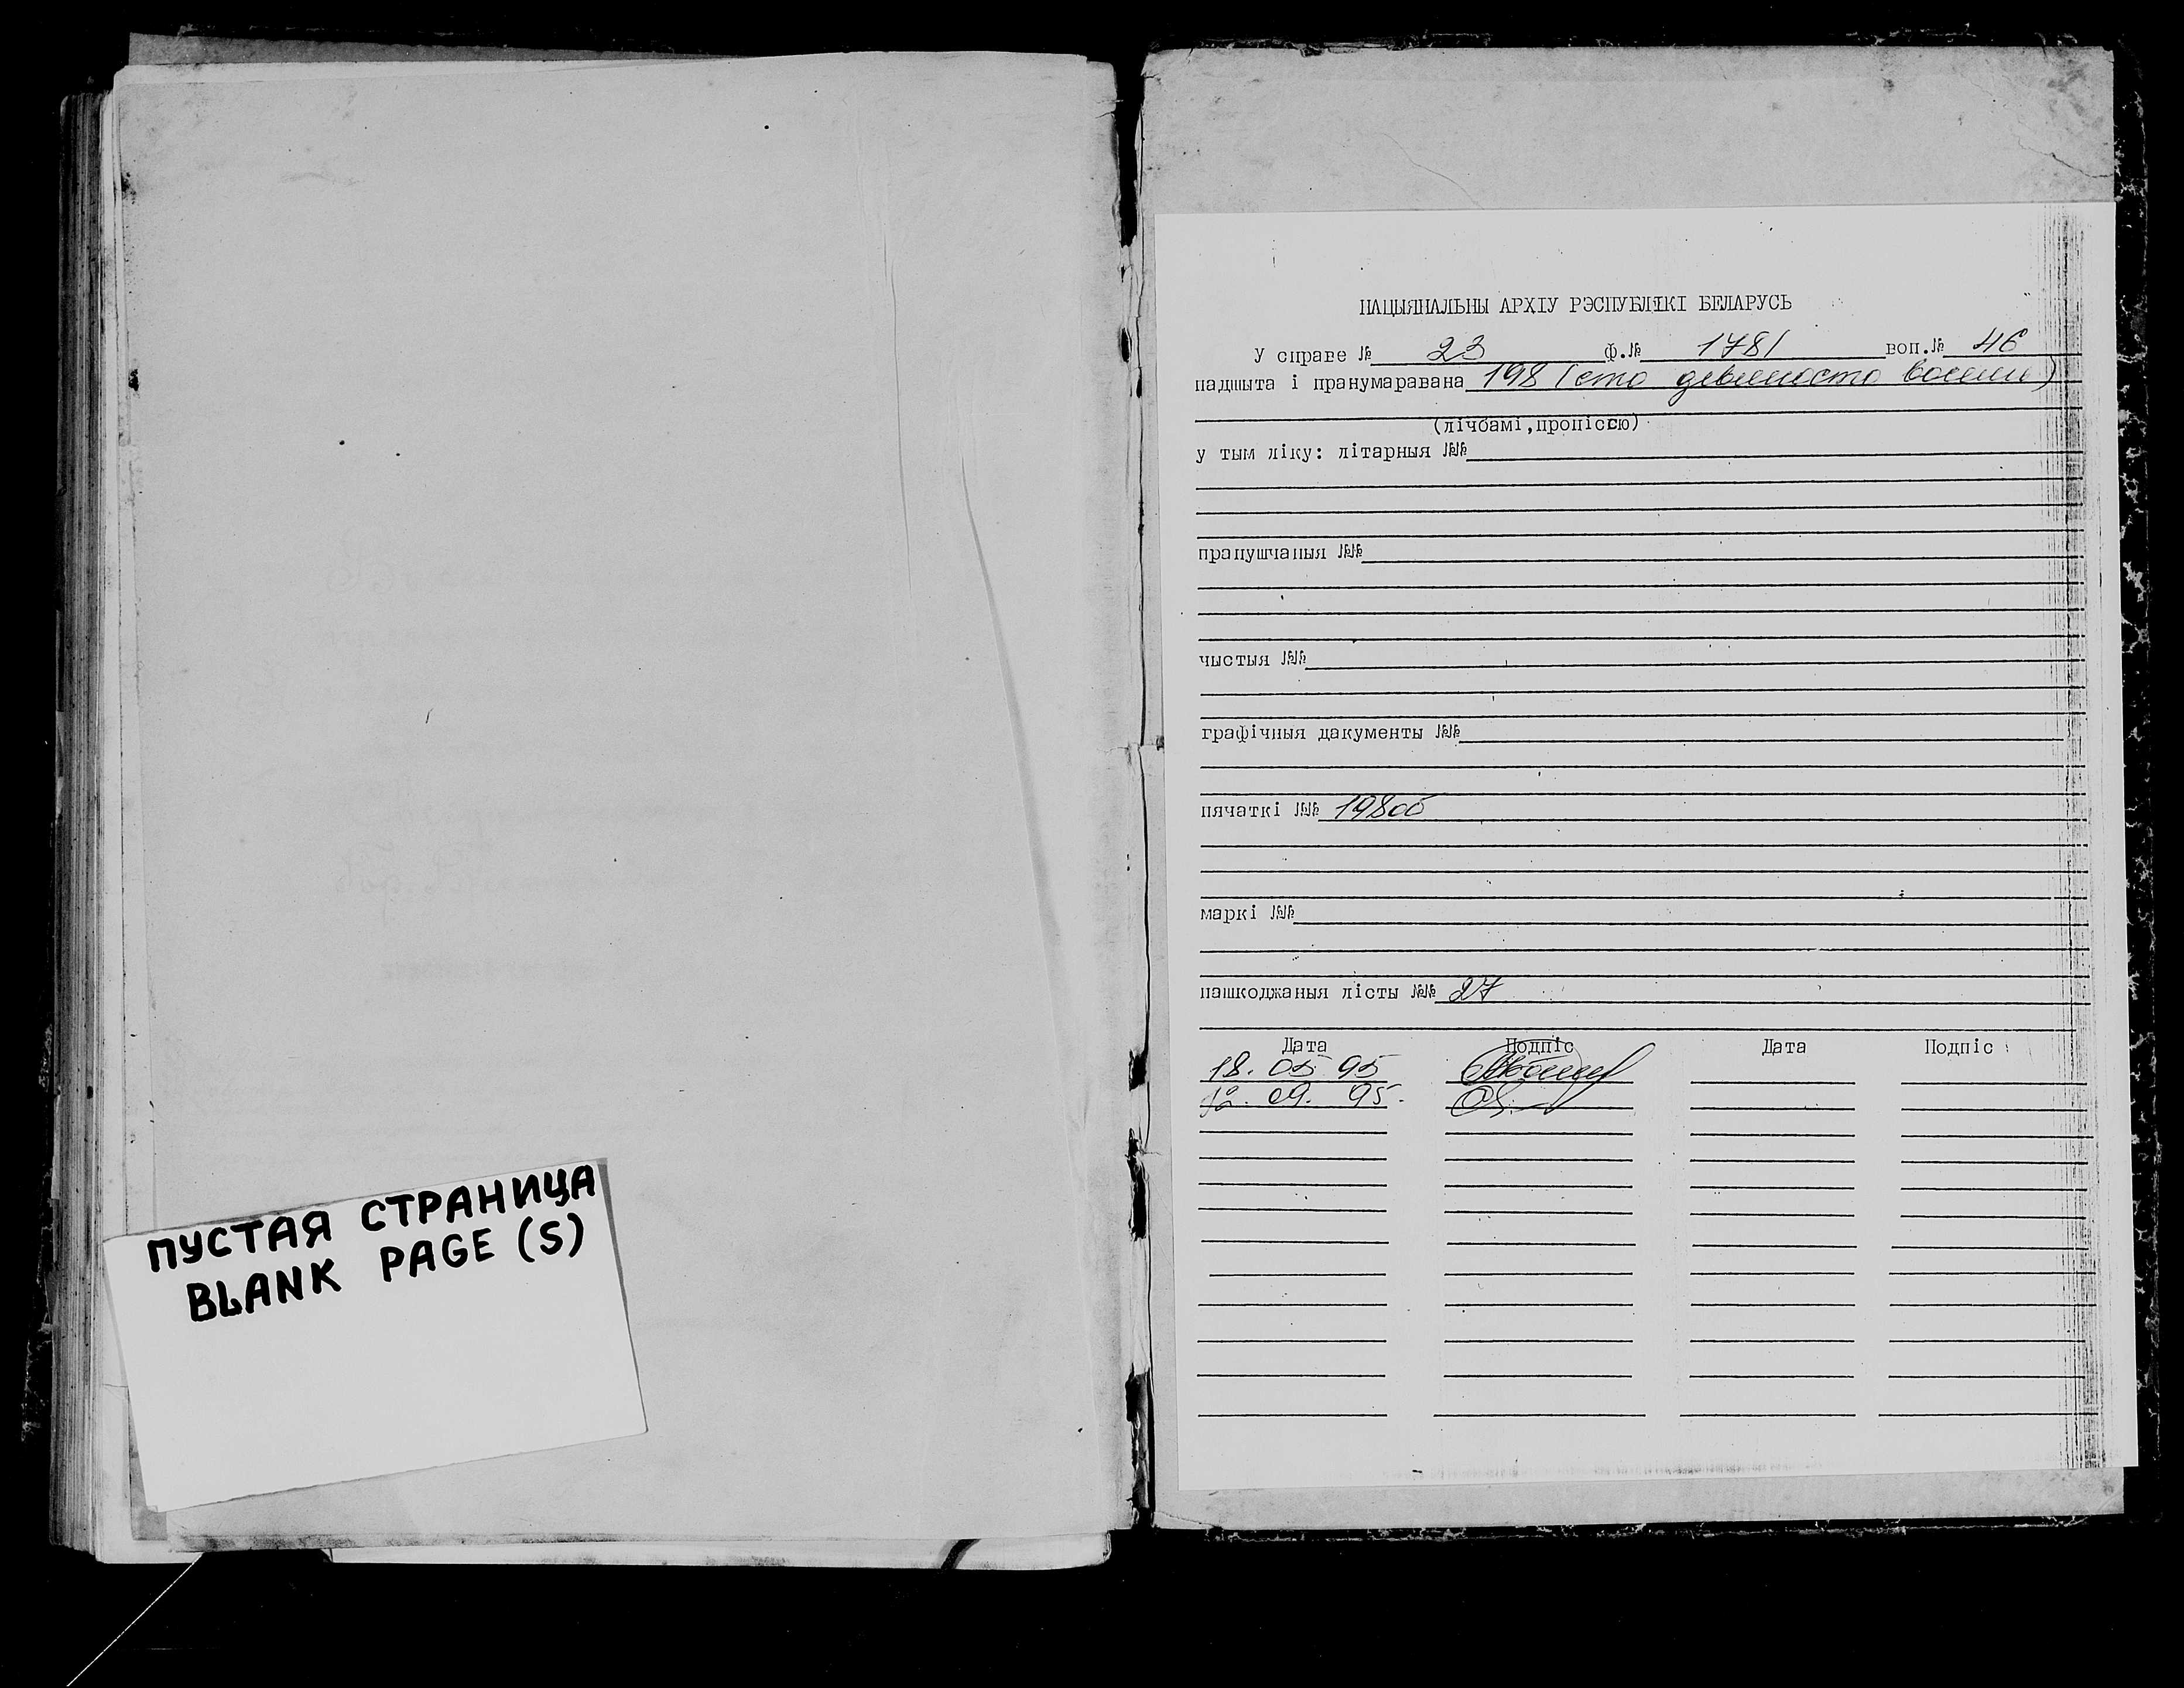 ПУСТАЯ СТРАНИЦА
BLANK PAGE (S)
НАЦЫЯНАЛЬНЫ АРХІУ РЭСПУБЛІКІ БЕЛАРУСЬ
У справе № 23 ф.№ 1781 воп.№ 46
падшыта і пранумаравана 198 (сто девяносто восемь)
(лічбамі,пропіссю)
у тым ліку: літарныя №№
прапушчаныя №№
чыстыя №№
графічныя дакументы №№
пячаткі №№ 198об
маркі №№
пашкоджаныя лісты №№ 27
Дата Подпіс Дата Подпіс
18. 05 95
12. 09. 95.